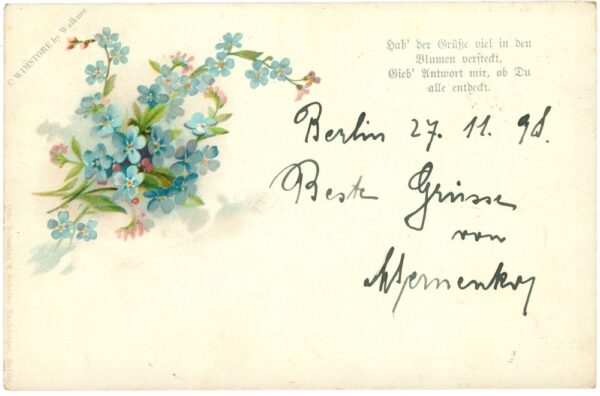 © WIMSTORE by Walkner
Hab' der Grüße viel in den
Blumen versteckt,
Gieb' Antwort mir, ob Du
alle entdeckt.
Berlin 27. 11. 98.
Beste Grüsse
von